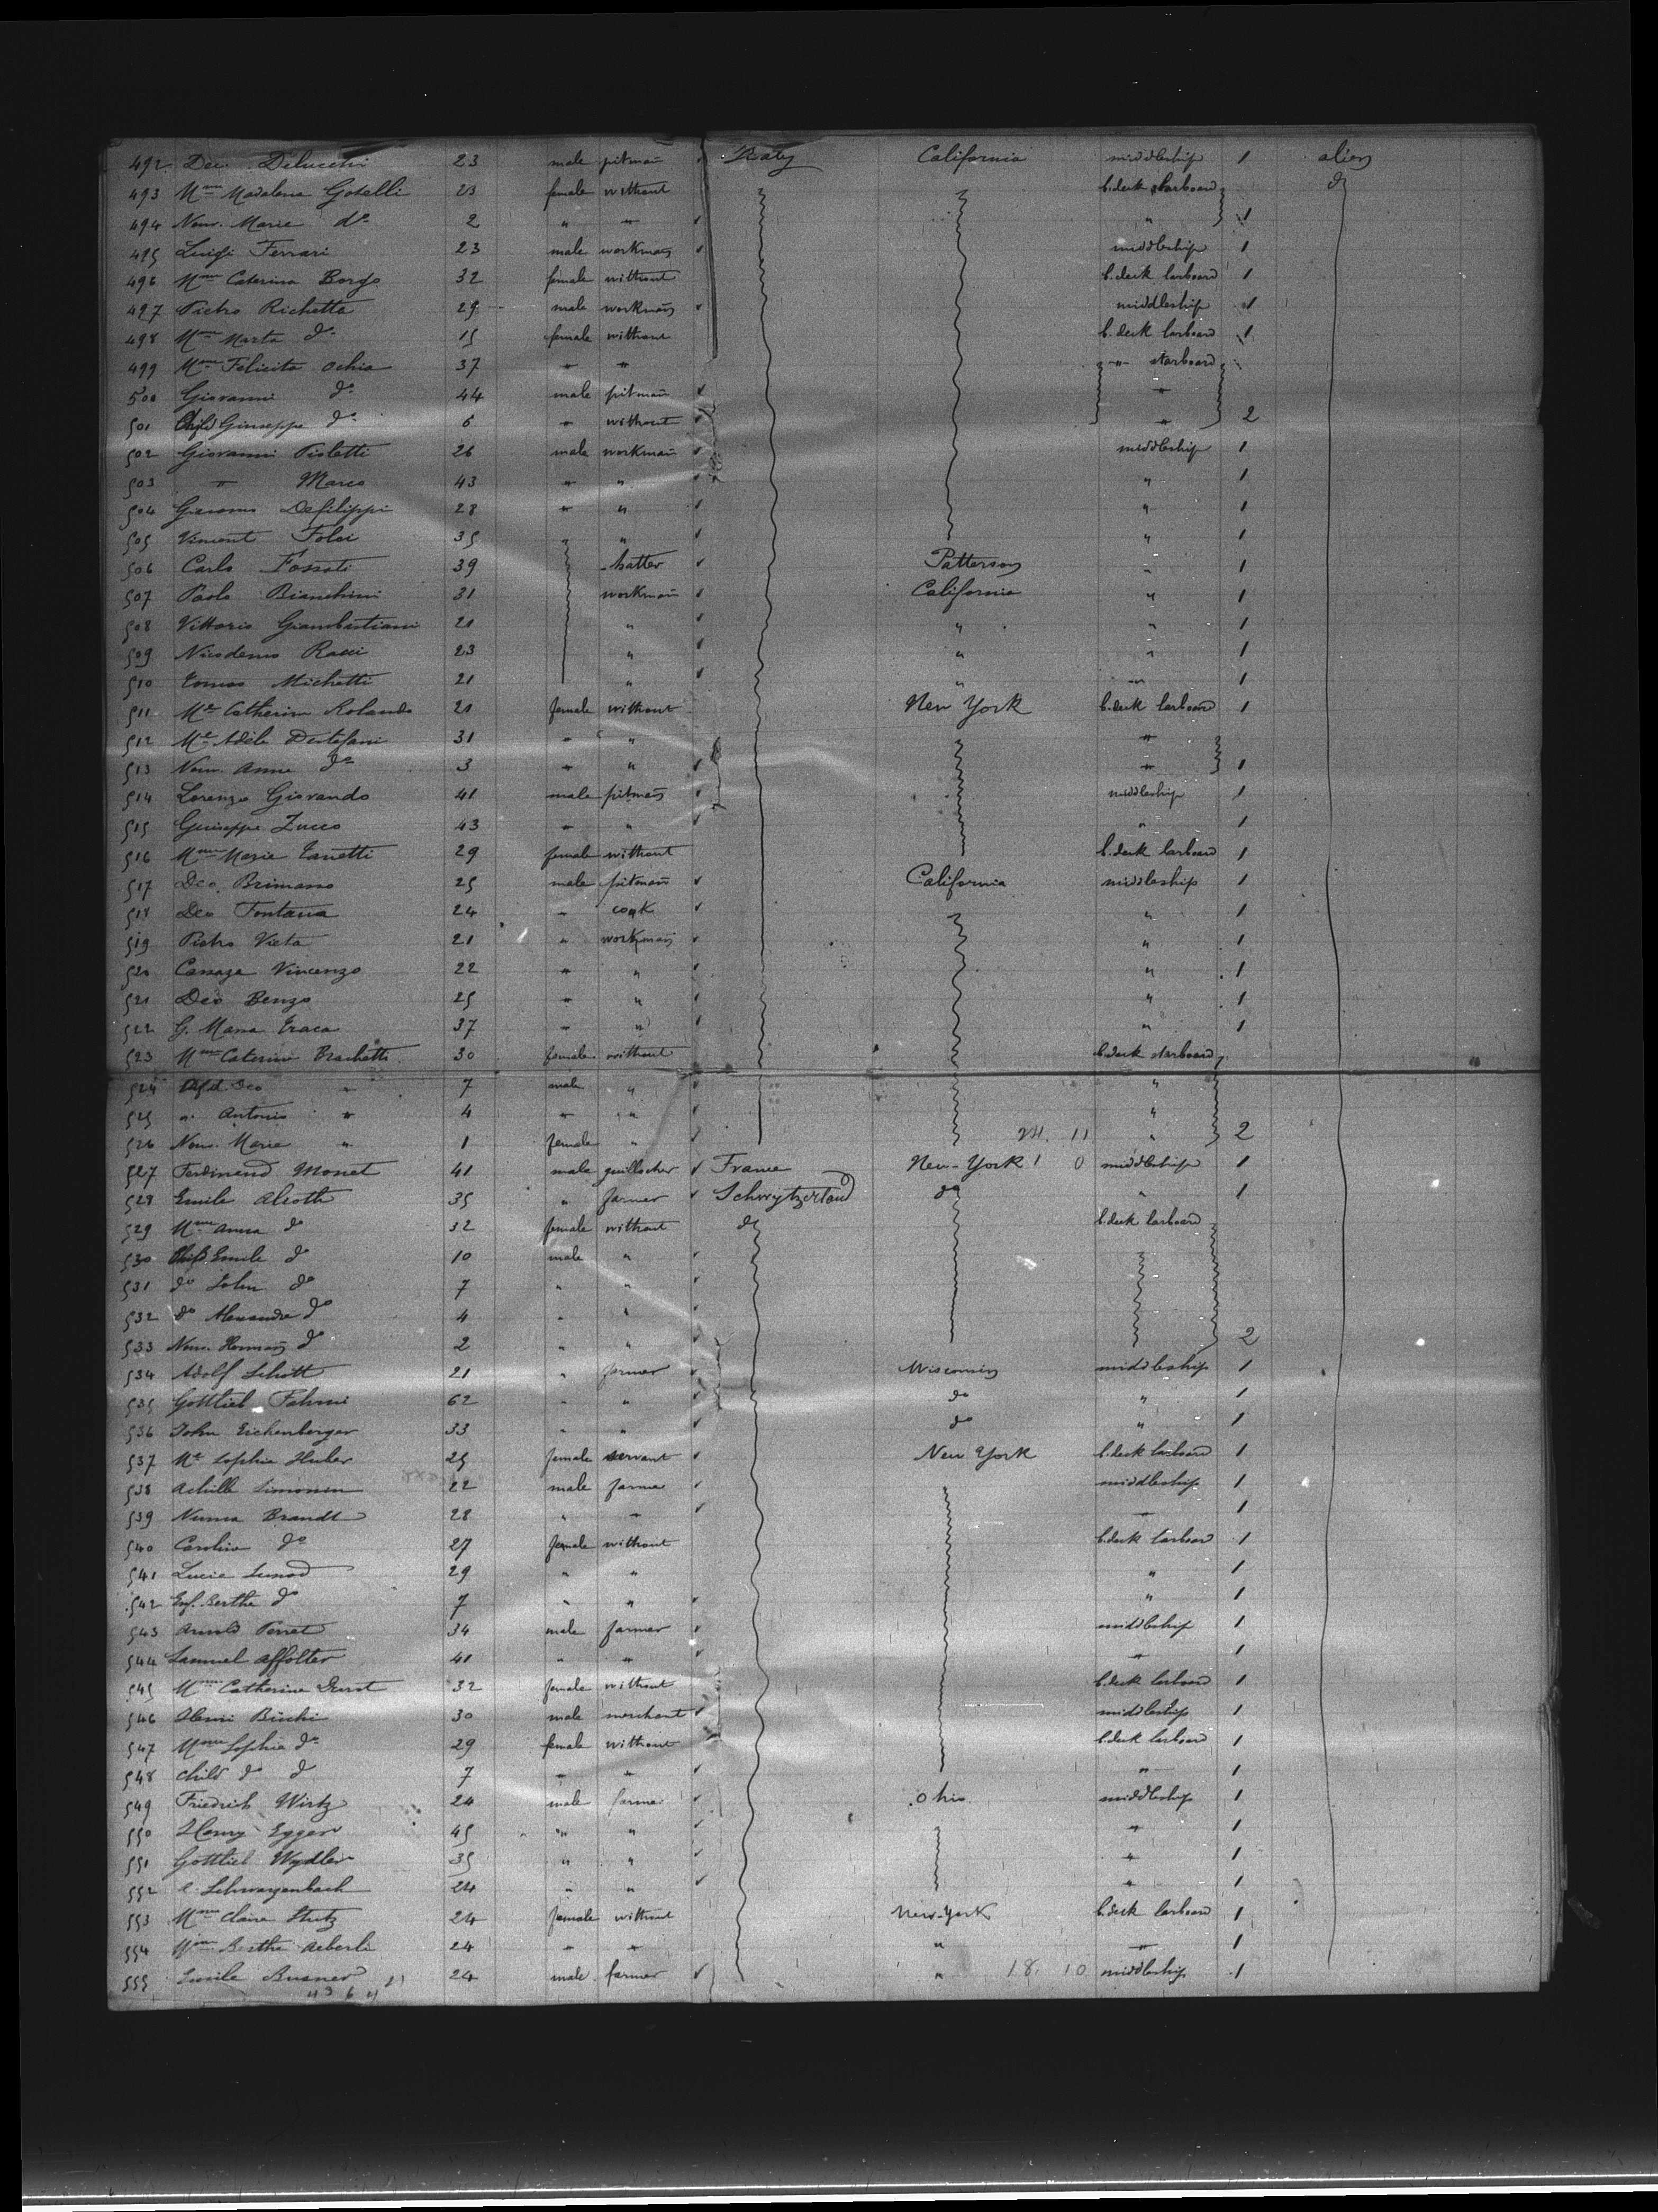 492 Deo. Delucchi 23 male pitman Italy California middleship 1 alien
493 Mme Madalena Gotelli 23 female without b.deck starboard do
494 Nour. Marie do 2 " " " 1
495 Luigi Ferrari 23 male workman middleship 1
496 Mme Caterina Borgo 32 female without b.deck larboard 1
497 Pietro Richetta 29 male workman middleship 1
498 Mme Marta do 15 female without b.deck larboard 1
499 Mme Felicita Ochia 37 " " " starboard
500 Giovanni do 44 male pitman "
501 Child Giuseppe do 6 " without " 2
502 Giovanni Pioletti 26 male workman middleship 1
503 " Marco 43 " " " 1
504 Giacomo Defilippi 28 " " " 1
505 Vincent Foloi 35 " " " 1
506 Carlo Fossati 39 hatter Patterson " 1
507 Paolo Bianchini 31 workman California " 1
508 Vittorio Giambastiani 21 " " " 1
509 Nicodemo Racci 23 " " " 1
510 Tomaso Michetti 21 " " " 1
511 Me Catherine Rolando 21 female without New York b.deck larboard 1
512 Me Adele Destefani 31 " " "
513 Nour. Anna do 3 " " " 1
514 Lorenzo Giovando 41 male pitman middleship 1
515 Giuseppe Zucco 43 " " " 1
516 Mme Marie Zanetti 29 female without b.deck larboard 1
517 Deo. Brimasso 25 male pitman California middleship 1
518 Deo Fontana 24 " cook " 1
519 Pietro Vieta 21 " workman " 1
520 Cassaza Vincenzo 22 " " " 1
521 Deo Benzo 25 " " " 1
522 G. Maria Traca 37 " " " 1
523 Mme Caterina Brachetti 30 female without b.deck starboard
524 Child Deo " 7 male " "
525 " Antonio " 4 " " "
526 Nour. Marie " 1 female " 24. 11 " 2
527 Ferdinend Monet 41 male guillocher France New-York 1 0 middleship 1
528 Emile Alioth 35 " farmer Schwytzerland do " 1
529 Mme Anna do 32 female without do b.deck larboard
530 Child Emile do 10 male "
531 do John do 7 " "
532 do Alexandre do 4 " "
533 Nour. Hermann do 2 " " 2
534 Adolf Schött 21 " farmer Wisconsin middleship 1
535 Gottlieb Fahrni 62 " " do " 1
536 John Eichenberger 33 " " do " 1
537 Me Sophie Huber 25 female servant New York b.deck larboard 1
538 Achille Simonin 22 male farmer middleship 1
539 Numa Brandt 28 " " " 1
540 Caroline do 27 female without b.deck larboard 1
541 Lucie Junod 29 " " " 1
542 Enf. Berthe do 7 " " " 1
543 Arnold Perret 34 male farmer middleship 1
544 Samuel Affolter 41 " " " 1
545 Mme Catherine Durst 32 female without b.deck larboard 1
546 Henri Büchi 30 male merchant middleship 1
547 Mme Sophie do 29 female without b.deck larboard 1
548 child do do 7 " " " 1
549 Friedrich Wirtz 24 male farmer Ohio middleship 1
550 Henry Egger 45 " " " 1
551 Gottlieb Wydler 35 " " " 1
552 E. Schwarzenbach 24 " " " 1
553 Mme Claire Stutz 24 female without New-York b.deck larboard 1
554 Mme Berthe Aeberli 24 " " " " 1
555 Emile Busner 24 male farmer " 18. 10 middleship 1